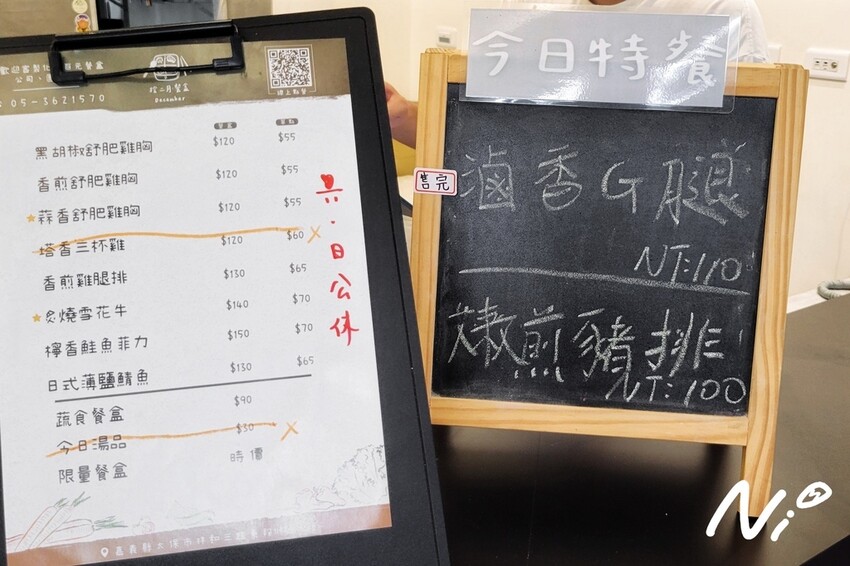 歡迎客製化
公司
05-3621570
拾二月餐盒
December
線上點餐
餐盒 單點
黑胡椒舒肥雞胸 $120 $55
香煎舒肥雞胸 $120 $55
蒜香舒肥雞胸 $120 $55
塔香三杯雞 $120 $60 X
香煎雞腿排 $130 $65
炙燒雪花牛 $140 $70
檸香鮭魚菲力 $150 $70
日式薄鹽鯖魚 $130 $65
蔬食餐盒 $90
今日湯品 $30 X
限量餐盒 時價
日公休
嘉義縣太保市祥和三路東段
今日特餐
售完
滷香G腿
NT:110
嫩煎豬排
NT:100
Ni